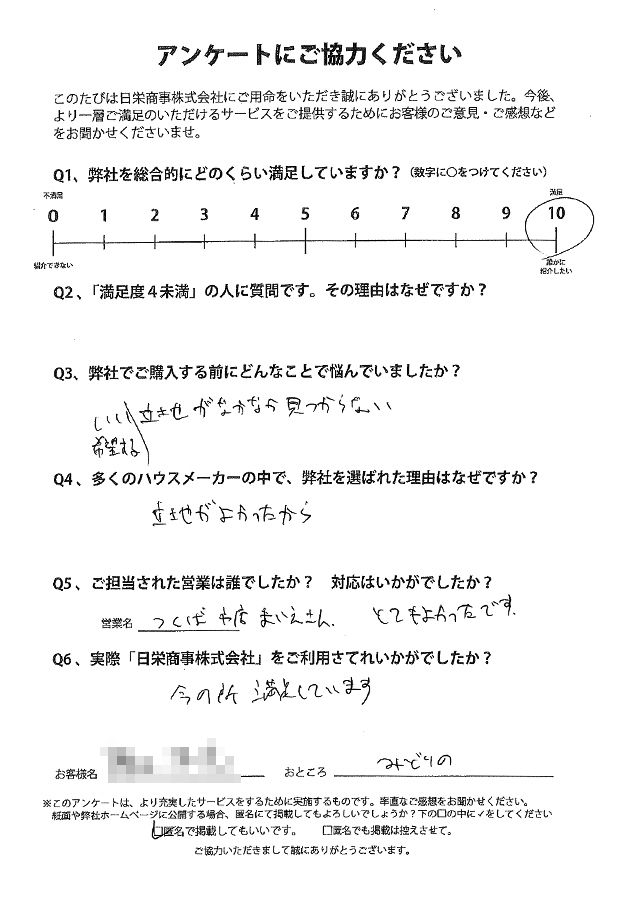 アンケートにご協力ください
このたびは日栄商事株式会社にご用命をいただき誠にありがとうございました。今後、
より一層ご満足のいただけるサービスをご提供するためにお客様のご意見・ご感想など
をお聞かせくださいませ。
Q1、弊社を総合的にどのくらい満足していますか？（数字に○をつけてください）
不満足 満足
0 1 2 3 4 5 6 7 8 9 10
紹介できない 誰かに
紹介したい
Q2、「満足度４未満」の人に質問です。その理由はなぜですか？
Q3、弊社でご購入する前にどんなことで悩んでいましたか？
いい 立地がなかなか見つからない
希望する
Q4、多くのハウスメーカーの中で、弊社を選ばれた理由はなぜですか？
立地がよかったから
Q5、ご担当された営業は誰でしたか？ 対応はいかがでしたか？
営業名 つくば本店 まいえさん. とてもよかったです.
Q6、実際「日栄商事株式会社」をご利用さてれいかがでしたか？
今の所 満足しています
お客様名 おところ みどりの
※このアンケートは、より充実したサービスをするために実施するものです。率直なご感想をお聞かせください。
紙面や弊社ホームページに公開する場合、匿名にて掲載してもよろしいでしょうか？下の□の中に✓をしてください
□匿名で掲載してもいいです。 □匿名でも掲載は控えさせて。
ご協力いただきまして誠にありがとうございます。